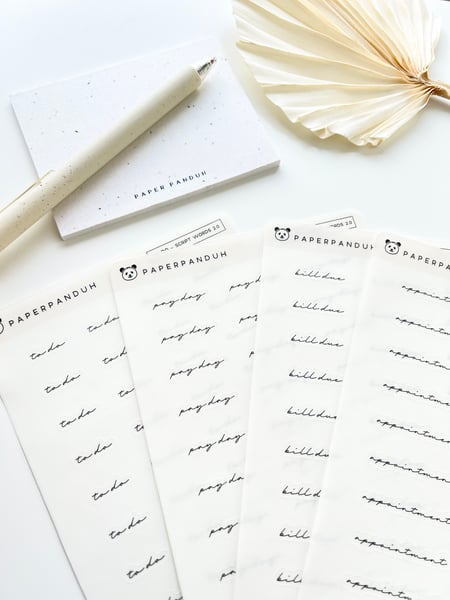 PAPER PANDUH
- SCRIPT WORDS 2.0
PAPERPANDUH
to do to do
to do to d
to do to
to do to
to do
to do
to do
PAPERPANDUH
pay day pay d
pay day pay
pay day
pay day
pay day
pay day
pay
pa
WORDS 2.0
PAPERPANDUH
bill due
bill due
bill due
bill due
bill due
bill du
bill d
bill
bill
PAPERPA
appoint
appointm
appointm
appointme
appointme
appointmen
appointment
appointment
appointment